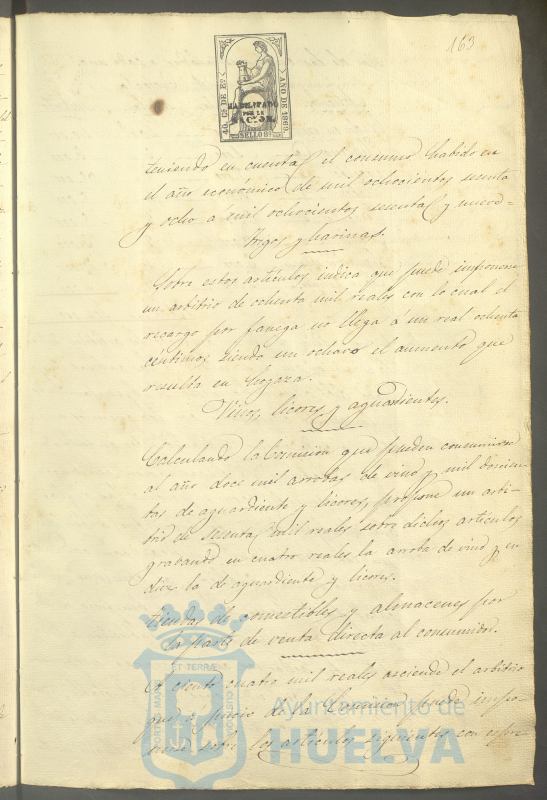 163
40 Cs. DE Eo.
AÑO DE 1869.
HABILITADO
POR LA
NACION.
SELLO 9º
teniendo en cuenta el consumo habido en
el año economico de mil ochocientos sesenta
y ocho a mil ochocientos sesenta y nueve=
Trigos y harinas.
Sobre estos articulos indica que puede imponerse
un arbitrio de ochenta mil reales con lo cual el
recargo por fanega no llega á un real ochenta
céntimos siendo un ochavo el aumento que
resulta en hogaza.
Vinos, licores y aguardientes.
Calculando la Comision que pueden consumirse
al año doce mil arrobas de vino y mil doscien-
tas de aguardiente y licores, propone un arbi-
trio de sesenta mil reales sobre dichos articulos
gravando en cuatro reales la arroba de vino y en
diez la de aguardiente y licores.
Tiendas de comestibles y almacenes por
la parte de venta directa al consumidor.
Á ciento cuatro mil reales asciende el arbitrio
que a juicio de la Comision puede impo-
nerse sobre los articulos siguientes con espre-
PORTUS MARIS
ET TERRÆ
CUSTODIA
Ayuntamiento de
HUELVA